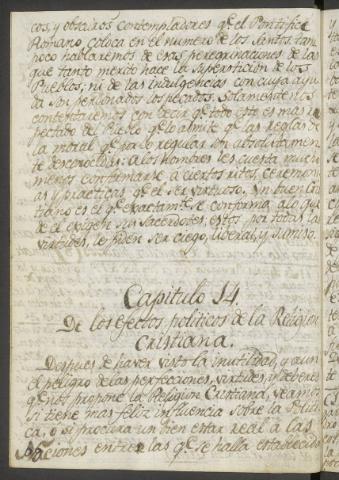 cos, y obscuros contempladores qe. el Pontifice
Romano coloca en el numero de los Santos. tam
poco hablaremos de esas peregrinaciones de las
que tanto merito hace la supersticion de los
Pueblos, ni de las indulgencias con cuia aiu
da son perdonados los pecados. Solamente nos
contentaremos con decir qe. todo esto es mas res
pectado del Pueblo qe. lo admite qe. las reglas de
la moral qe. para regular son absolutamen
te desconocidas. a los hombres les cuesta mucho
menos conformarse a ciertos ritos, ceremoni
as y practicas qe. el ser virtuoso. Un buen Cris
tiano es el qe. exactamte. se conforma a lo que
de el exigen sus Sacerdotes; estos, por todas las
virtudes, le piden ser ciego, liberal, y sumiso.
Capitulo 14.
De los efectos politicos de la Religion
Cristiana.
Despues de haver visto la inutilidad, y aun
el peligro de las perfecciones, virtudes, y deberes
qe. nos propone la Religion Cristiana, veamos
si tiene mas feliz influencia sobre la Politi
ca, o si procura un bien estar real a las
Naciones entre las qe. se halla establecida